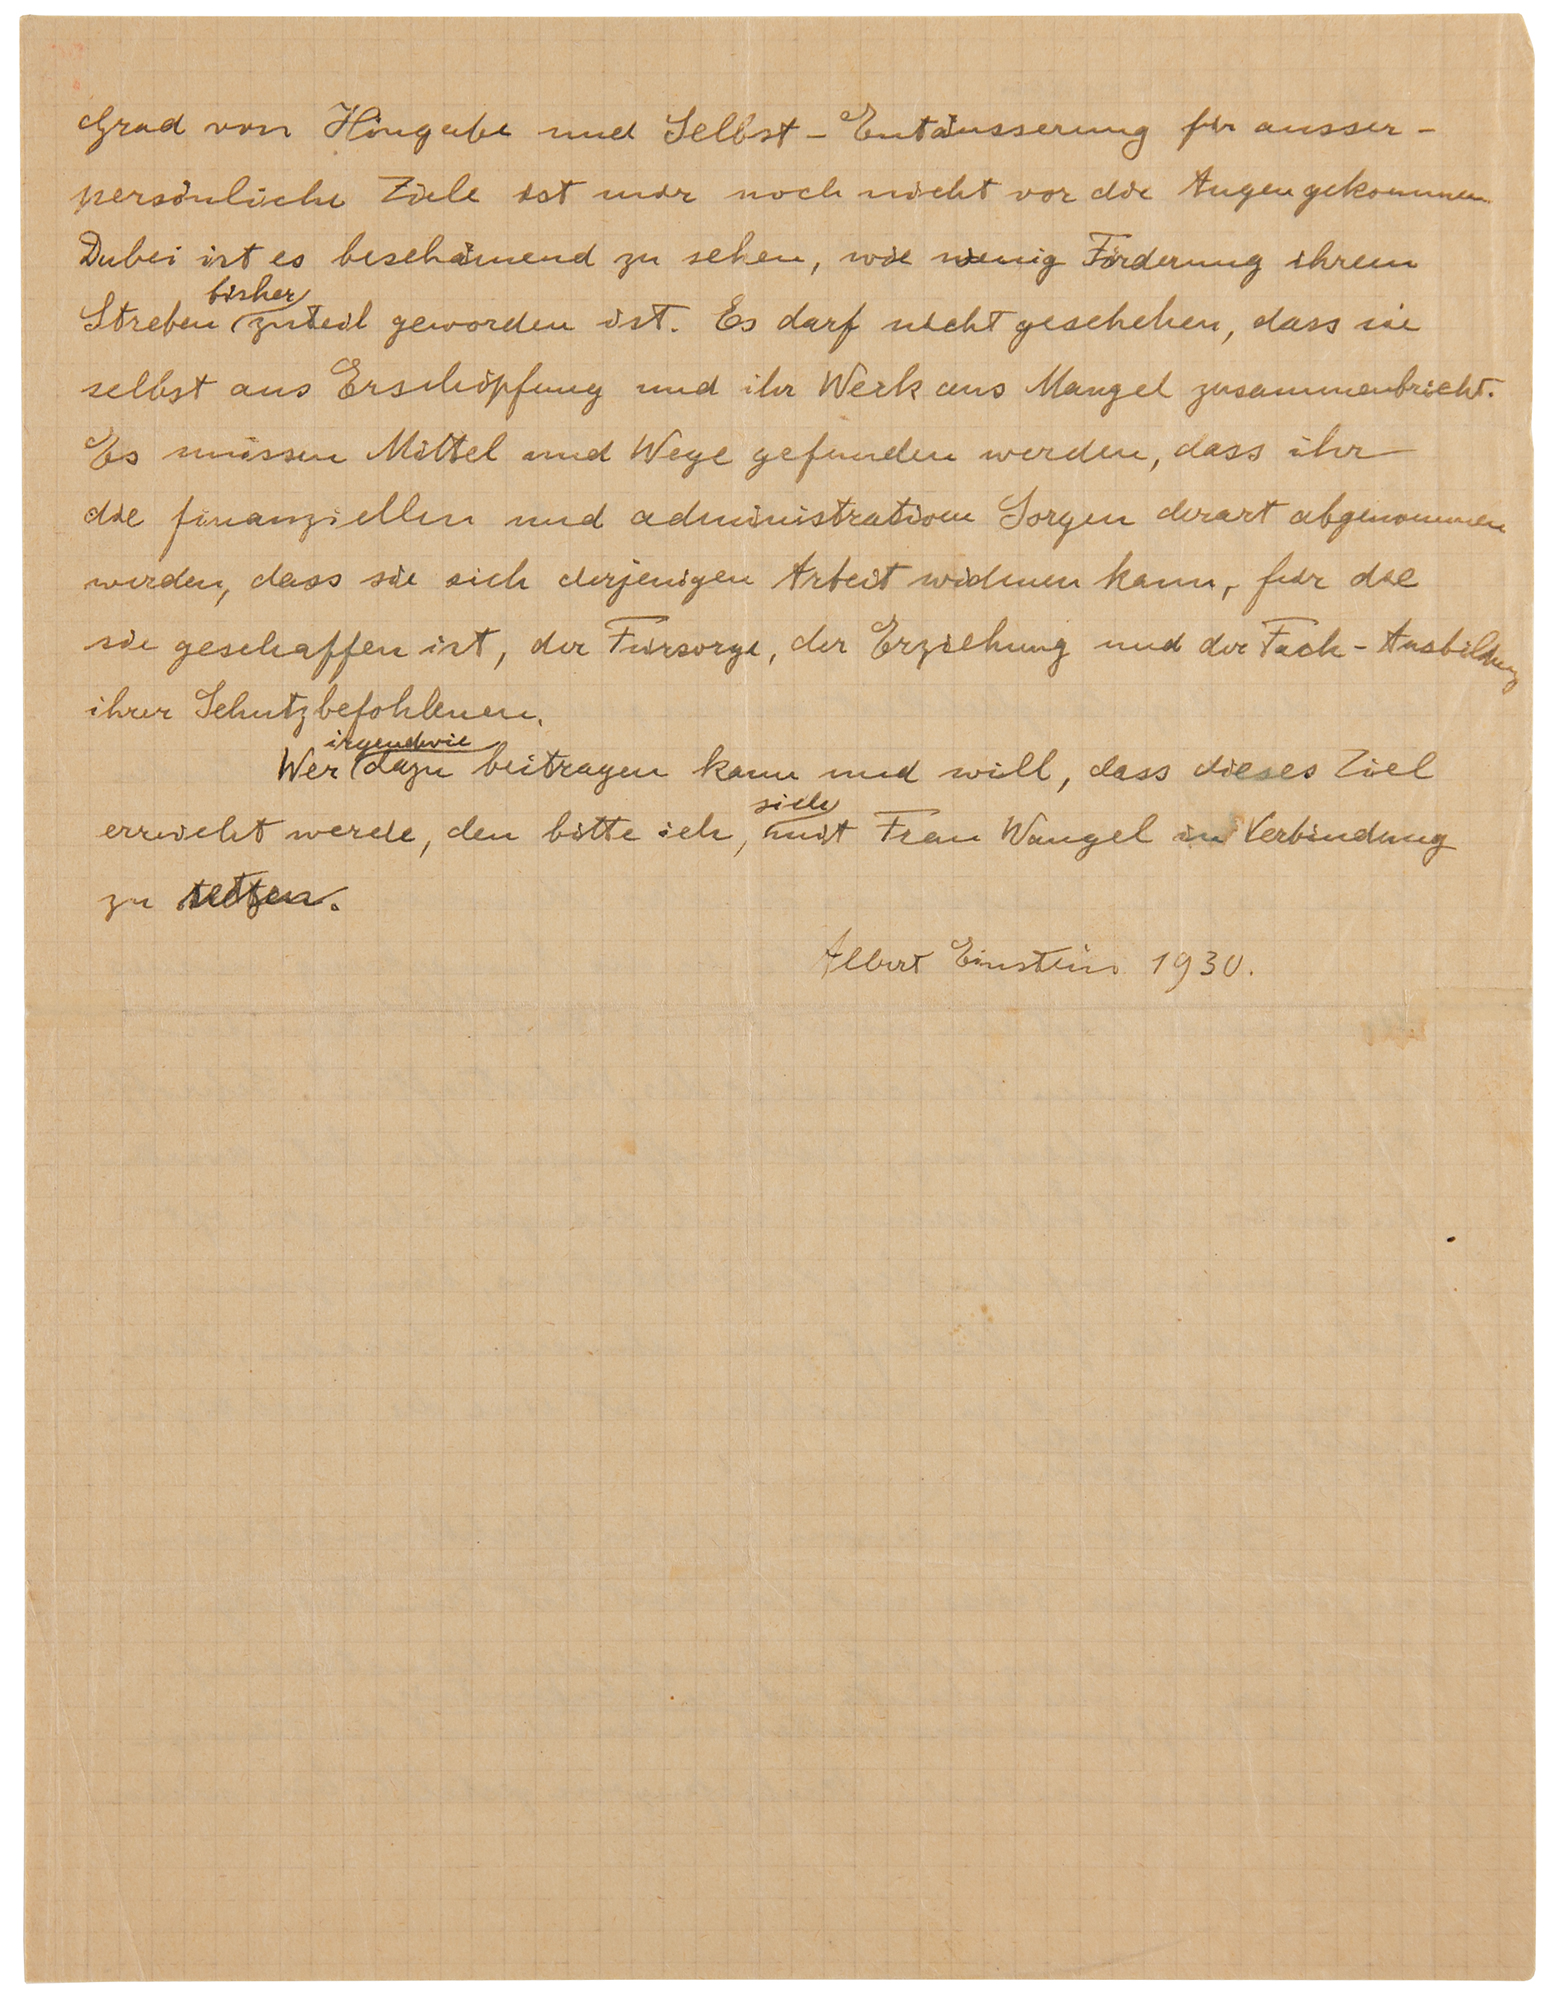 Grad von Hingabe und Selbst-Entäusserung für ausser-
persönliche Ziele ist mir noch nicht vor die Augen gekommen
Dabei ist es beschämend zu sehen, wie wenig Förderung ihrem
bisher
Streben zuteil geworden ist. Es darf nicht geschehen, dass sie
selbst aus Erschöpfung und ihr Werk aus Mangel zusammenbricht.
Es müssen Mittel und Wege gefunden werden, dass ihr
die finanziellen und administrativen Sorgen derart abgenommen
werden, dass sie sich derjenigen Arbeit widmen kann, für die
sie geschaffen ist, der Fürsorge, der Erziehung und der Fach-Ausbildung
ihrer Schutzbefohlenen.
irgendwie
Wer dazu beitragen kann und will, dass dieses Ziel
sich
erreicht werde, den bitte ich, mit Frau Wangel in Verbindung
zu setzen.
Albert Einstein 1930.